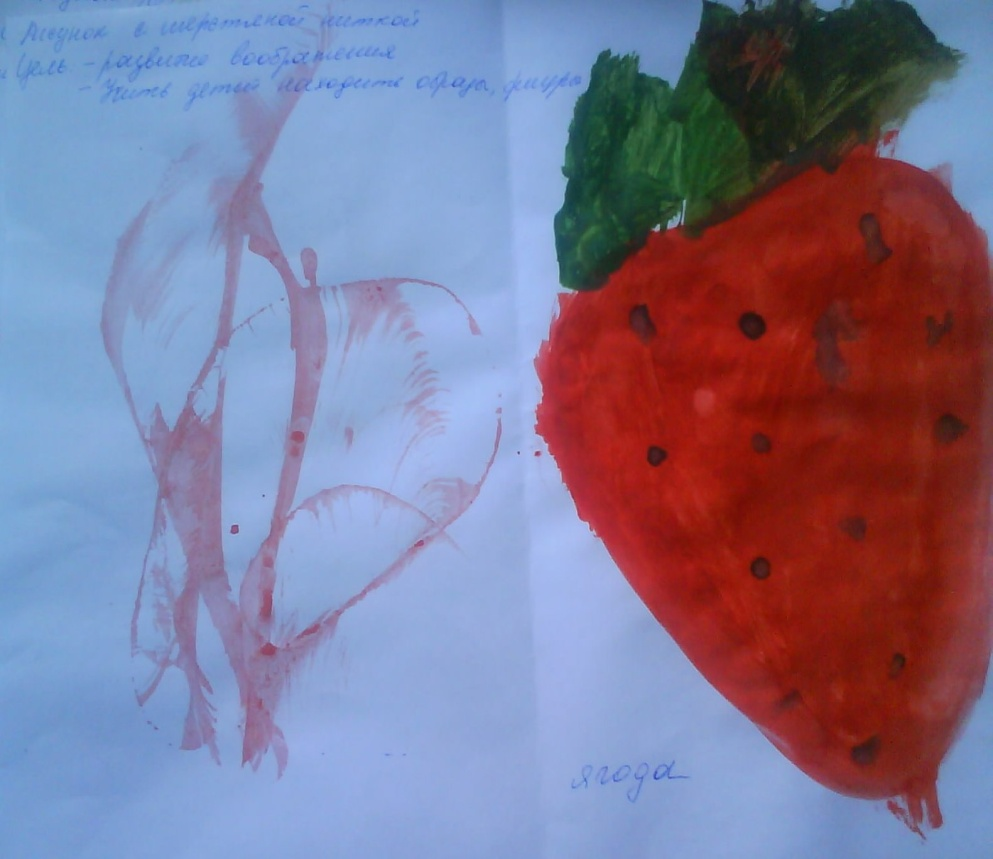 Рисунок с шерстяной ниткой
Цель - развитие воображения
- Учить детей находить образы, фигуры
ягода